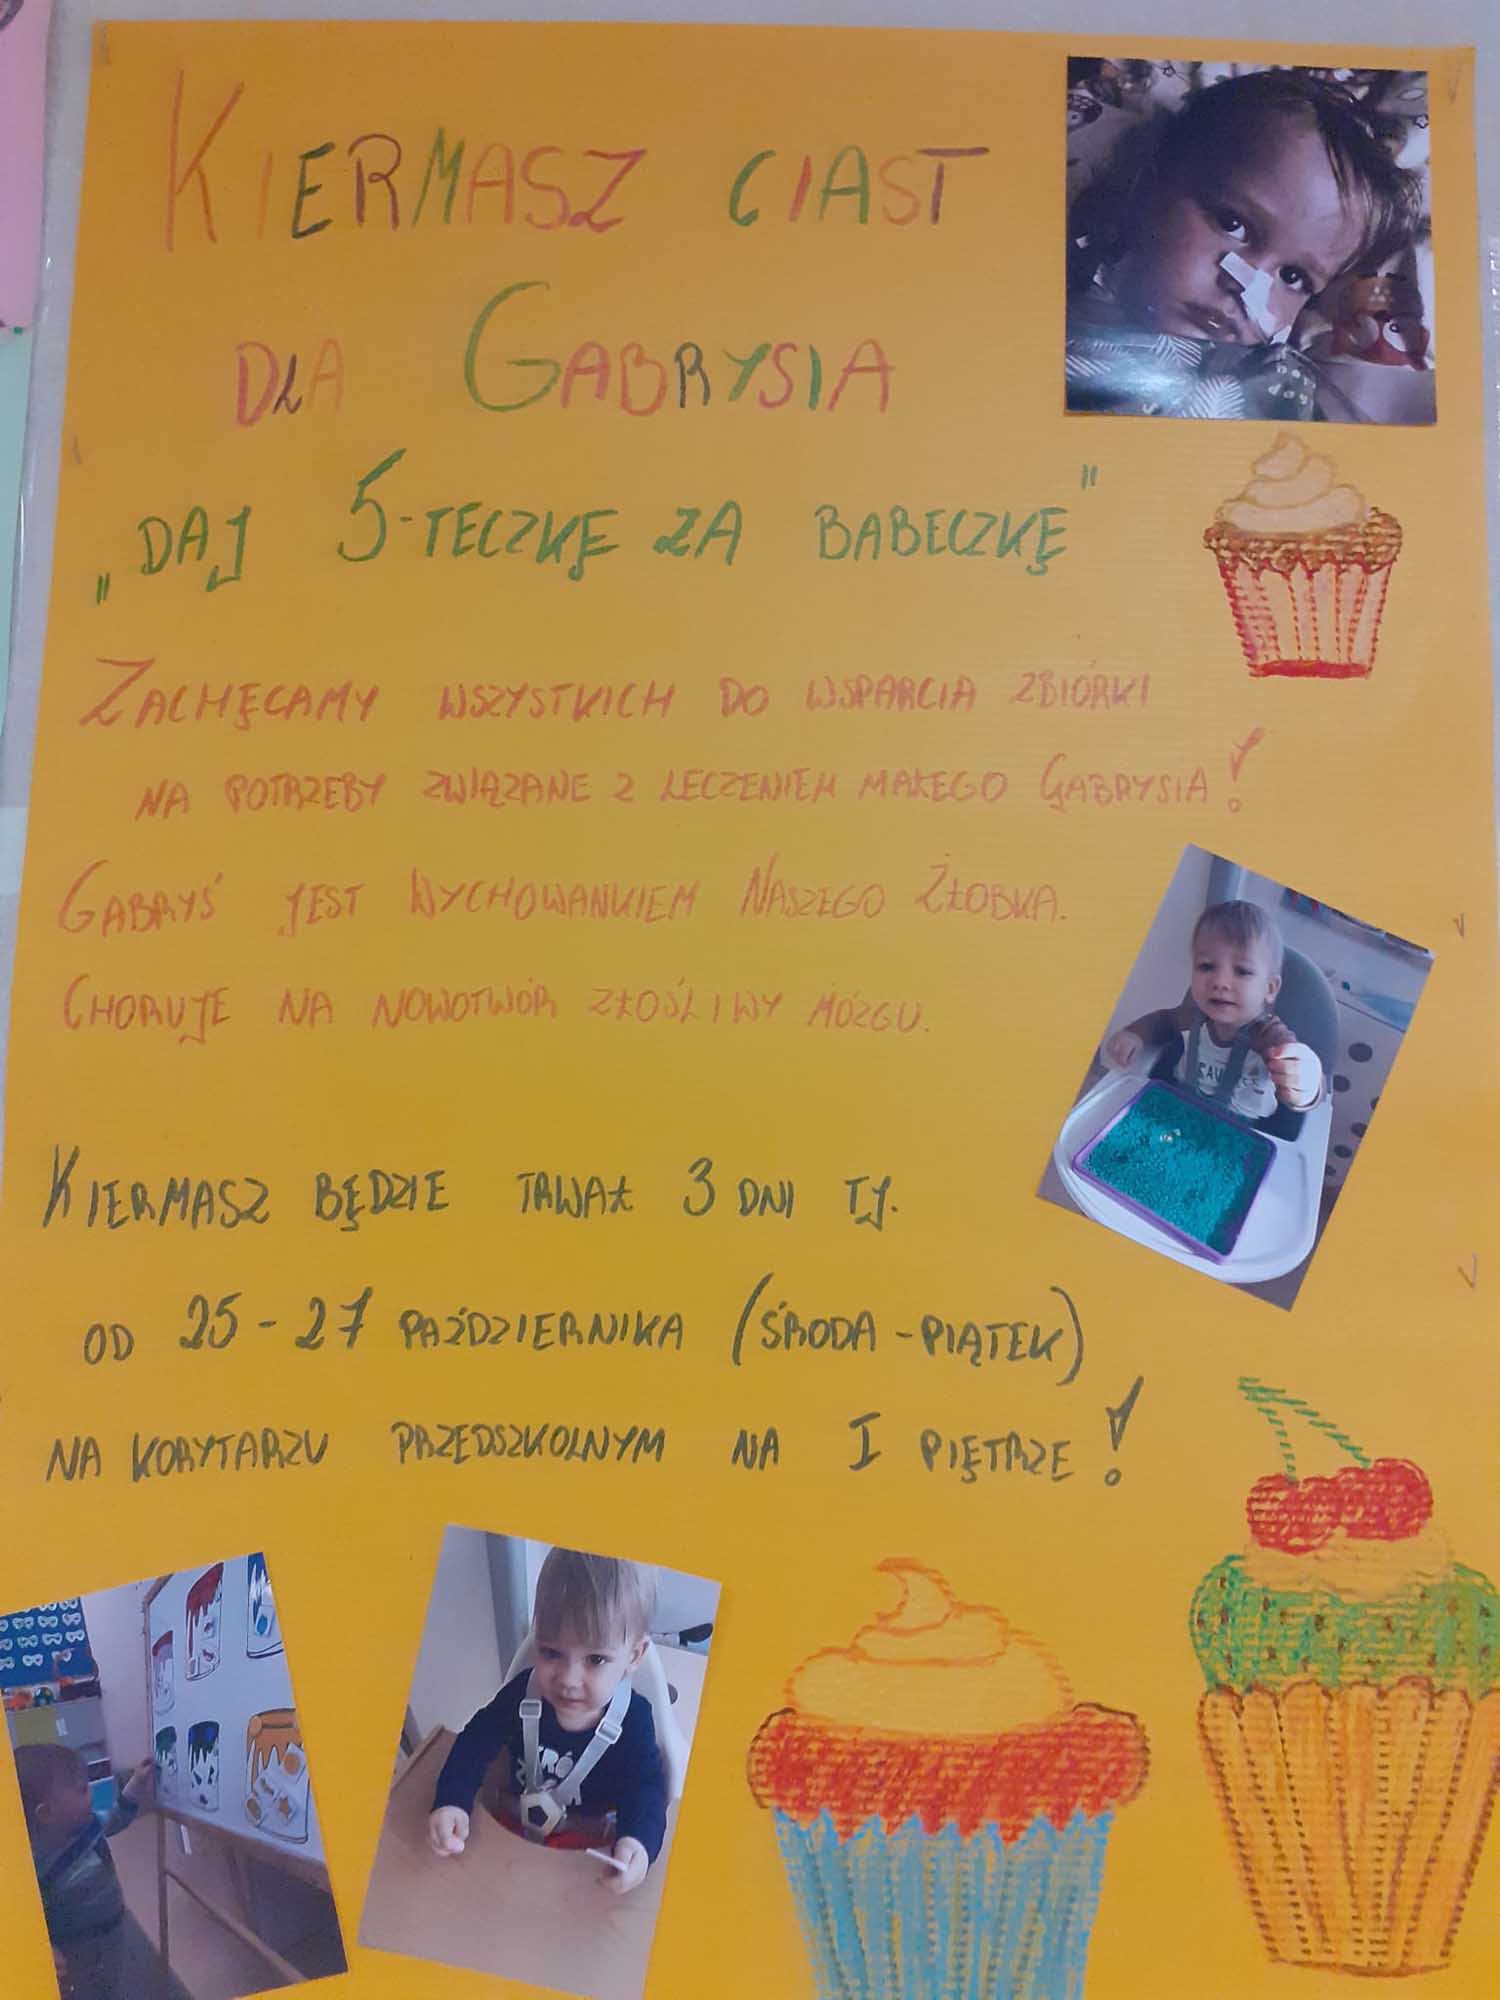 KIERMASZ CIAST
DLA GABRYSIA
„DAJ 5-TECZKĘ ZA BABECZKĘ"
ZACHĘCAMY WSZYSTKICH DO WSPARCIA ZBIÓRKI
NA POTRZEBY ZWIĄZANE Z LECZENIEM MAŁEGO GABRYSIA!
GABRYŚ JEST WYCHOWANKIEM NASZEGO ŻŁOBKA.
CHORUJE NA NOWOTWÓR ZŁOŚLIWY MÓZGU.
KIERMASZ BĘDZIE TRWAŁ 3 DNI TJ.
OD 25-27 PAŹDZIERNIKA (ŚRODA-PIĄTEK)
NA KORYTARZU PRZEDSZKOLNYM NA I PIĘTRZE!